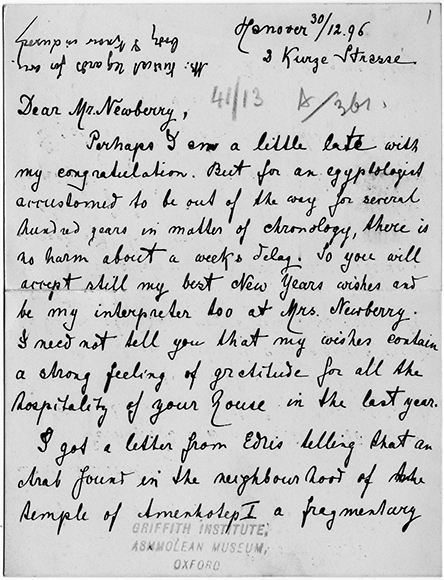 1
Hanover 30/12.96
2 Kurze Strasse
regards for
I know
41/13 A/361.
Dear Mr. Newberry,
Perhaps I am a little late with
my congratulation. But for an egyptologist
accustomed to be out of the way for several
hundred years in matter of chronology, there is
no harm about a weeks delay. So you will
accept still my best New Years wishes and
be my interpreter too at Mrs. Newberry.
I need not tell you that my wishes contain
a strong feeling of gratitude for all the
hospitality of your house in the last year.
I got a letter from Edris telling that an
Arab found in the neighbourhood of the
temple of Amenhotep I a fragmentary
GRIFFITH INSTITUTE,
ASHMOLEAN MUSEUM,
OXFORD